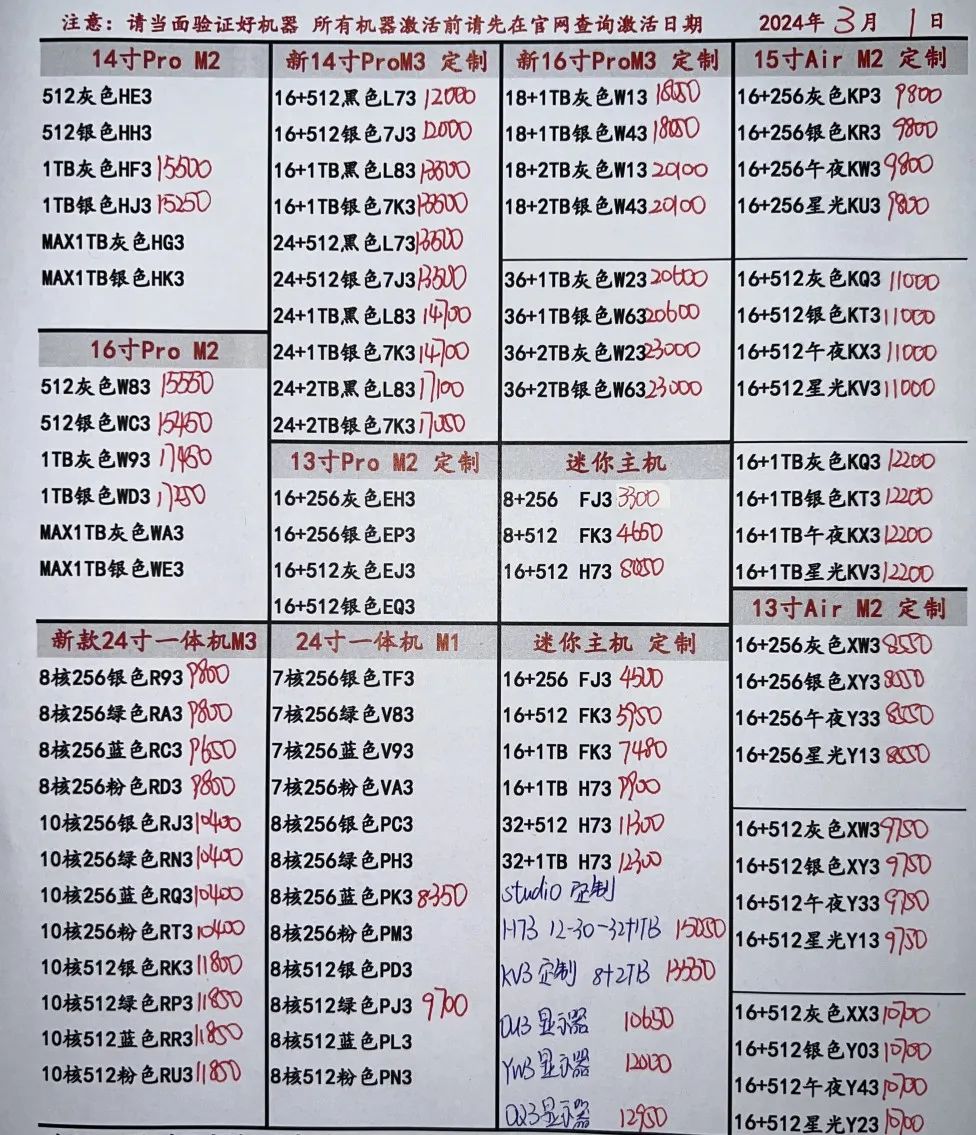 注意：请当面验证好机器 所有机器激活前请先在官网查询激活日期 2024年 3月 1日
14寸Pro M2
512灰色HE3
512银色HH3
1TB灰色HF3 15500
1TB银色HJ3 15250
MAX1TB灰色HG3
MAX1TB银色HK3
16寸Pro M2
512灰色W83 15550
512银色WC3 15450
1TB灰色W93 17450
1TB银色WD3 17250
MAX1TB灰色WA3
MAX1TB银色WE3
新款24寸一体机M3
8核256银色R93 9800
8核256绿色RA3 9800
8核256蓝色RC3 9650
8核256粉色RD3 9800
10核256银色RJ3 10400
10核256绿色RN3 10400
10核256蓝色RQ3 10400
10核256粉色RT3 10400
10核512银色RK3 11800
10核512绿色RP3 11850
10核512蓝色RR3 11850
10核512粉色RU3 11850
新14寸ProM3 定制
16+512黑色L73 12000
16+512银色7J3 12000
16+1TB黑色L83 13500
16+1TB银色7K3 13500
24+512黑色L73 13500
24+512银色7J3 13500
24+1TB黑色L83 14700
24+1TB银色7K3 14700
24+2TB黑色L83 17100
24+2TB银色7K3 17050
13寸Pro M2 定制
16+256灰色EH3
16+256银色EP3
16+512灰色EJ3
16+512银色EQ3
24寸一体机 M1
7核256银色TF3
7核256绿色V83
7核256蓝色V93
7核256粉色VA3
8核256银色PC3
8核256绿色PH3
8核256蓝色PK3 8350
8核256粉色PM3
8核512银色PD3
8核512绿色PJ3 9700
8核512蓝色PL3
8核512粉色PN3
新16寸ProM3 定制
18+1TB灰色W13 18050
18+1TB银色W43 18050
18+2TB灰色W13 20100
18+2TB银色W43 20100
36+1TB灰色W23 20600
36+1TB银色W63 20600
36+2TB灰色W23 23000
36+2TB银色W63 23000
迷你主机
8+256 FJ3 3300
8+512 FK3 4650
16+512 H73 8050
迷你主机 定制
16+256 FJ3 4500
16+512 FK3 5950
16+1TB FK3 7480
16+1TB H73 9900
32+512 H73 11300
32+1TB H73 12300
studio 定制
H73 12-30-32+1TB 15050
KV3 定制 8+2TB 13550
显示器 10650
YW3 显示器 12000
DQ3 显示器 12950
15寸Air M2 定制
16+256灰色KP3 9800
16+256银色KR3 9800
16+256午夜KW3 9800
16+256星光KU3 9800
16+512灰色KQ3 11000
16+512银色KT3 11000
16+512午夜KX3 11000
16+512星光KV3 11000
16+1TB灰色KQ3 12200
16+1TB银色KT3 12200
16+1TB午夜KX3 12200
16+1TB星光KV3 12200
13寸Air M2 定制
16+256灰色XW3 8550
16+256银色XY3 8550
16+256午夜Y33 8550
16+256星光Y13 8550
16+512灰色XW3 9750
16+512银色XY3 9750
16+512午夜Y33 9750
16+512星光Y13 9750
16+512灰色XX3 10700
16+512银色Y03 10700
16+512午夜Y43 10700
16+512星光Y23 10700